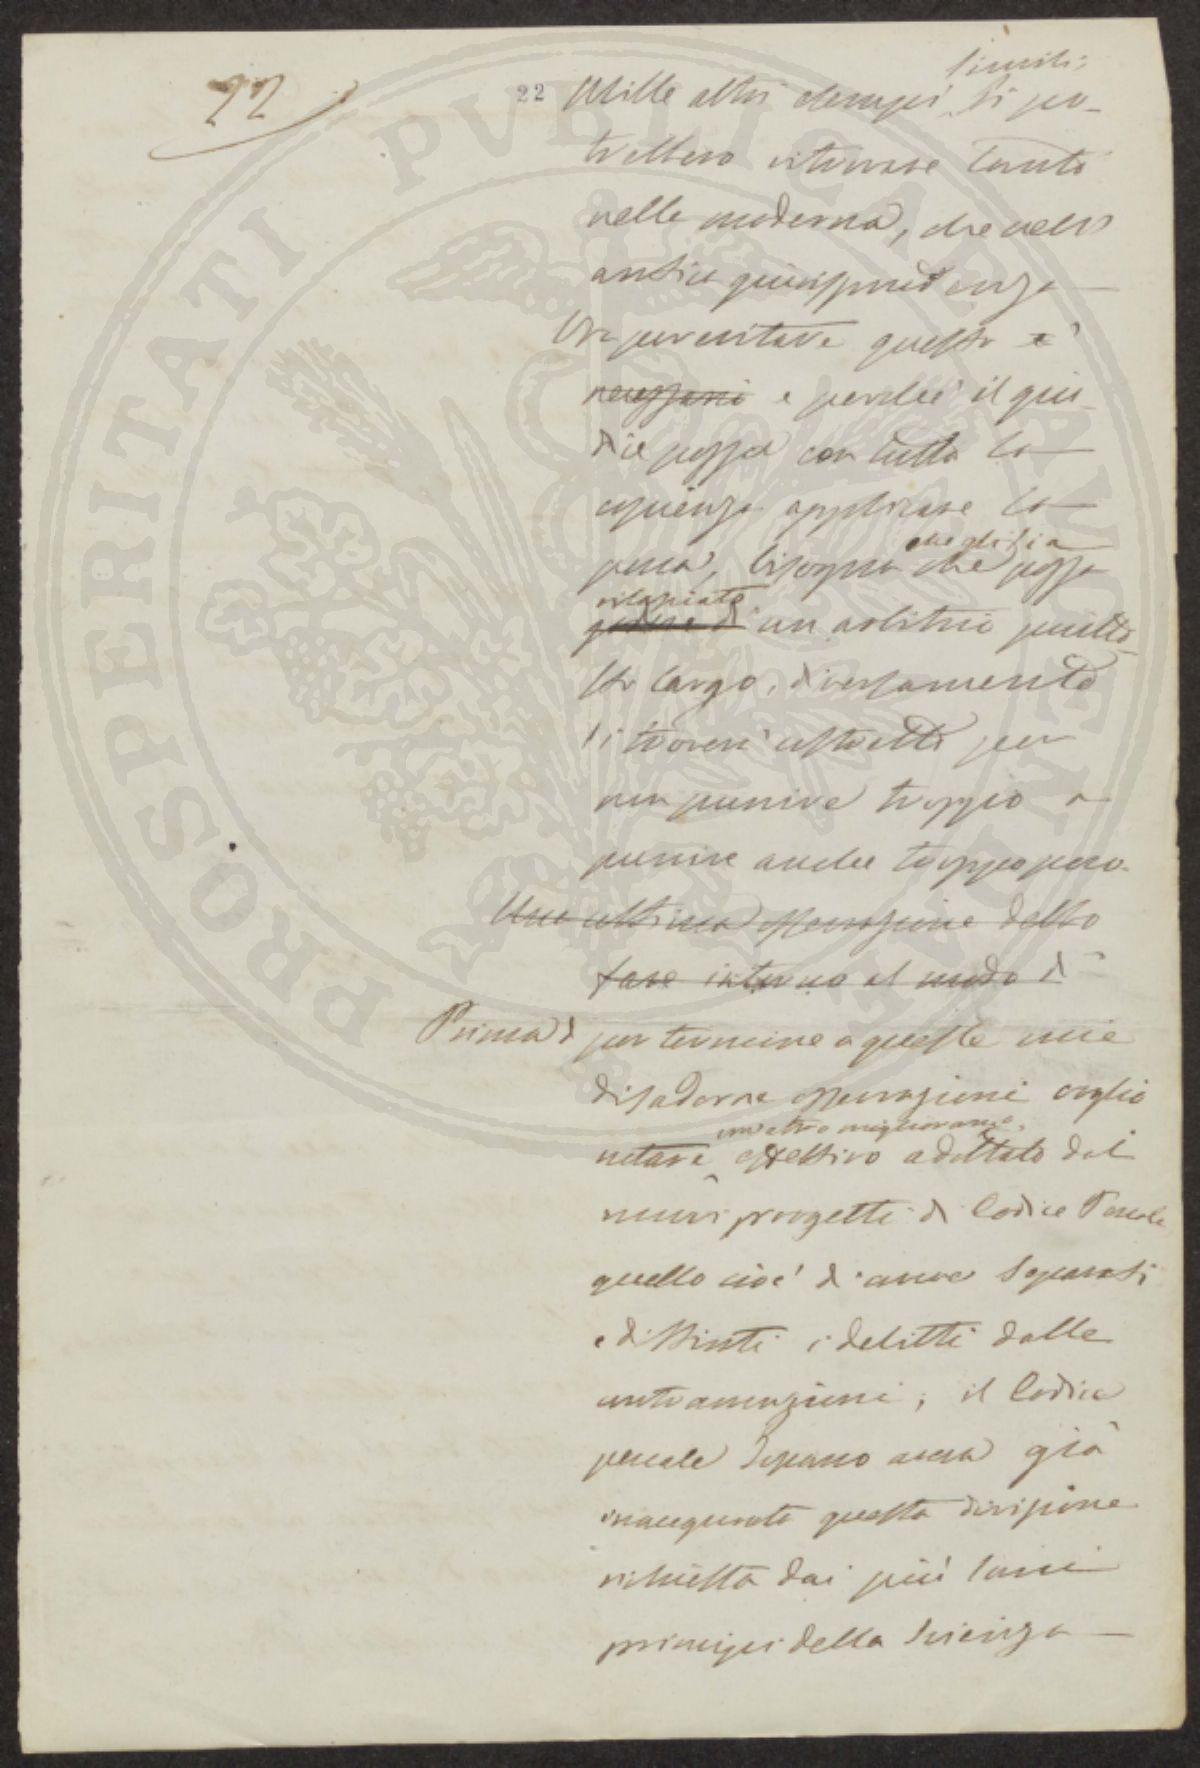 22
22 Mille altri esempi simili si po-
trebbero ritrovare tanto
nelle moderna, che nell'
antica giurisprudenza
Or per evitare questo e'
necessario e perché il giu-
dice possa con tutta la
sapienza applicare la
pena, bisogna che gli sia che possa
rilasciato godere di un arbitrio piutto-
sto largo, diversamente
si troverà costretto per
non punire troppo a
punire anche troppo poco.
Una ultima osservazione debbo
fare intorno al modo di
Prima di por termine a queste mie
disadorne osservazioni voglio
notare un altro miglioramento adottato dai
nuovi progetti di Codice Penale
quello cioè d'avere separati
e distinti i delitti dalle
contravvenzioni; il Codice
penale Ispano avea già
inaugurata questa divisione
richiesta dai più sani
principi della Scienza
PROSPERITATI PVBLICAE AVGENDAE